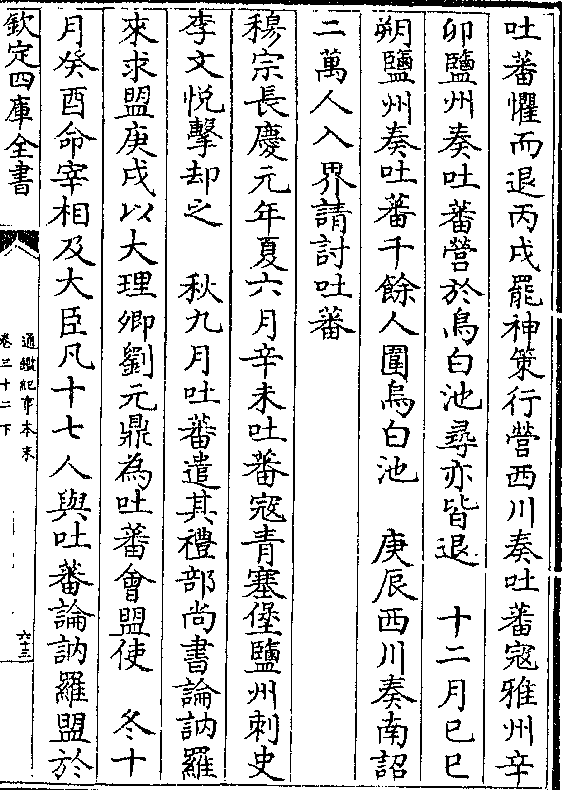 吐蕃懼而退丙戌罷神策行營西川奏吐蕃寇雅州辛
卯鹽州奏吐蕃營於烏白池尋亦皆退　十二月已巳
朔鹽州奏吐蕃千餘人圍烏白池　庚辰西川奏南詔
二萬人入界請討吐蕃
穆宗長慶元年夏六月辛未吐蕃寇青塞堡鹽州刺史
李文悦擊却之　秋九月吐蕃遣其禮部尚書論訥羅
來求盟庚戌以大理卿劉元鼎為吐蕃會盟使　冬十
月癸酉命宰相及大臣凡十七人與吐蕃論訥羅盟於
欽定四庫全書
通鑑紀事本末
卷三十二下
六十三